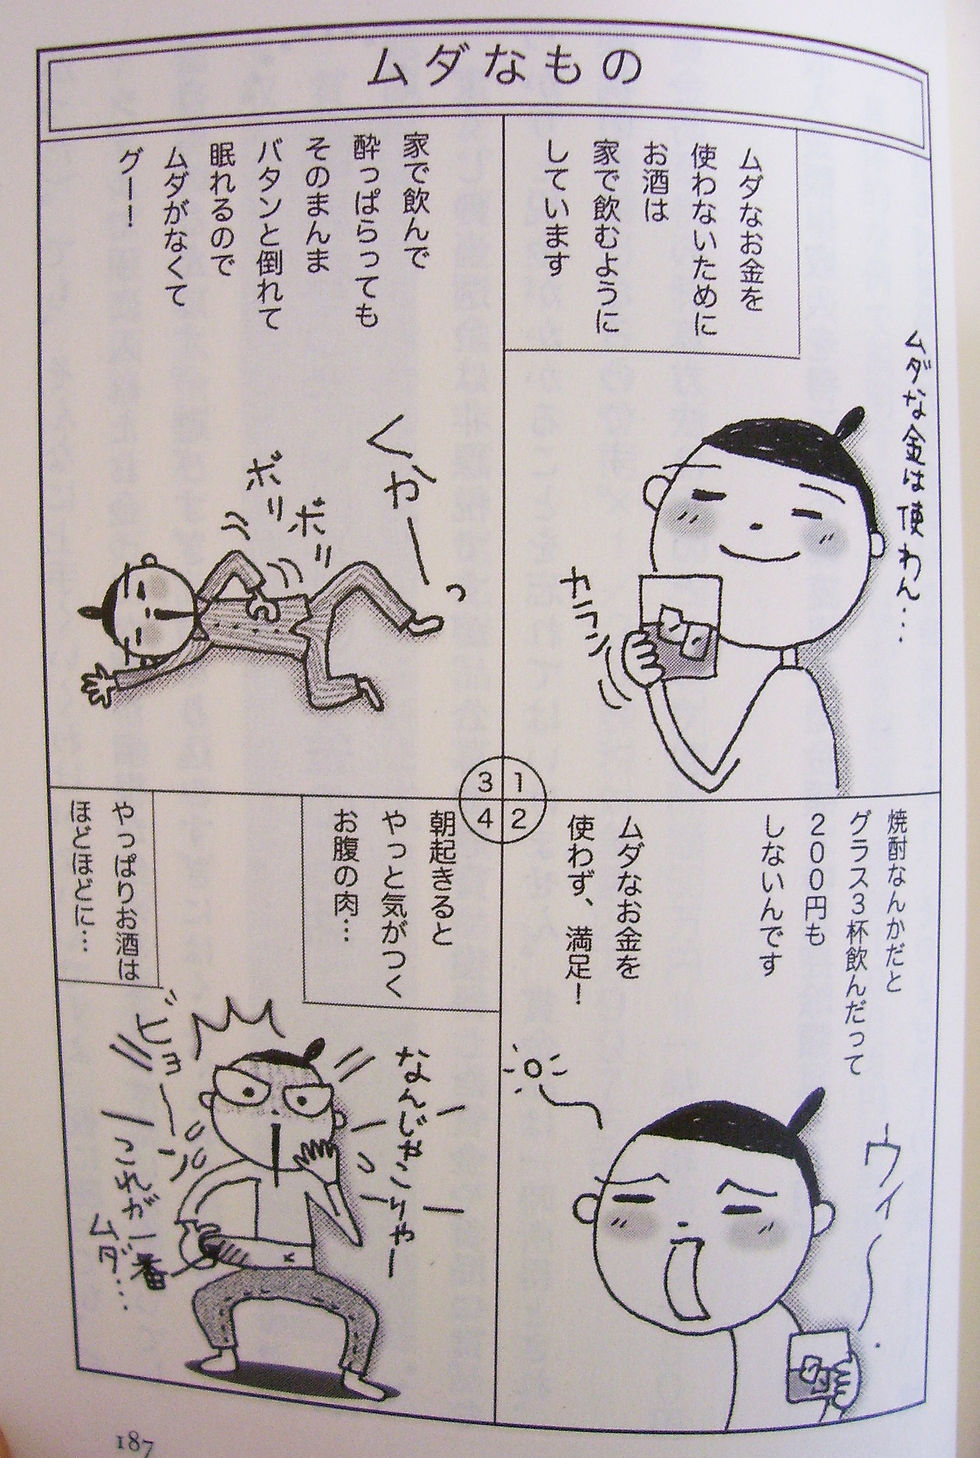 ムダなもの
ムダなお金を
使わないために
お酒は
家で飲むように
しています
ムダな金は使わん…
カラン
1
焼酎なんかだと
グラス3杯飲んだって
200円も
しないんです
ムダなお金を
使わず、満足！
ウィ〜
2
家で飲んで
酔っぱらっても
そのまんま
バタンと倒れて
眠れるので
ムダがなくて
グー！
くかーっ
ボリボリ
3
朝起きると
やっと気がつく
お腹の肉…
なんじゃこりゃー
ビヨーン
これが一番
ムダ…
やっぱりお酒は
ほどほどに…
4
187